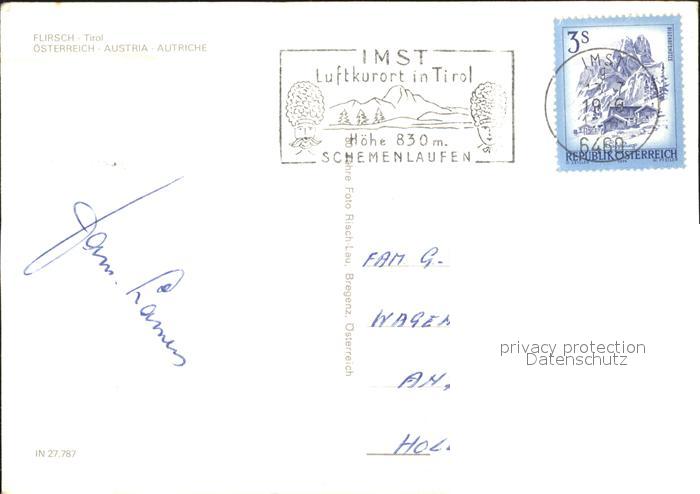 FLIRSCH - Tirol
ÖSTERREICH - AUSTRIA - AUTRICHE
IMST
Luftkurort in Tirol
Höhe 830 m.
SCHEMENLAUFEN
3S
IMST
6460
REPUBLIK ÖSTERREICH
Foto Risch-Lau, Bregenz, Österreich
Fam.
FAM G.
WAGEN
AH,
HOL.
privacy protection
Datenschutz
IN 27.787